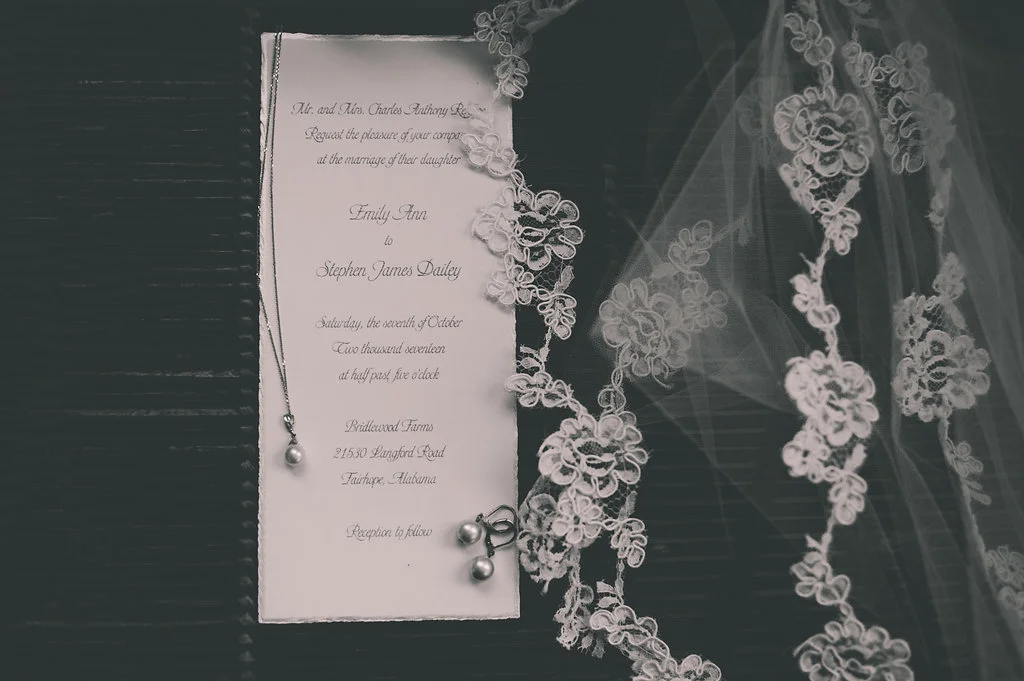 Mr. and Mrs. Charles Anthony
Request the pleasure of your
at the marriage of their daughter
Emily Ann
to
Stephen James Dailey
Saturday, the seventh of October
Two thousand seventeen
at half past five o'clock
Bridlewood Farms
21530 Langford Road
Fairhope, Alabama
Reception to follow